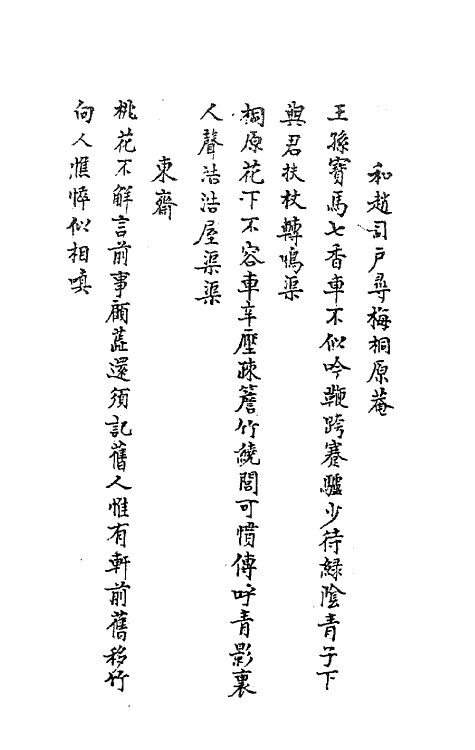 和趙司戶尋梅桐原菴
王孫寶馬七香車不似吟鞭跨蹇驢少待綠陰青子下
與君扶杖轉鳴渠
桐原花下不容車辛壓疎簷竹繞閭可惜傳呼青影裏
人聲浩浩屋渠渠
東齋
桃花不解言前事顧蓝還須記舊人惟有軒前舊移竹
向人憔悴似相嗔